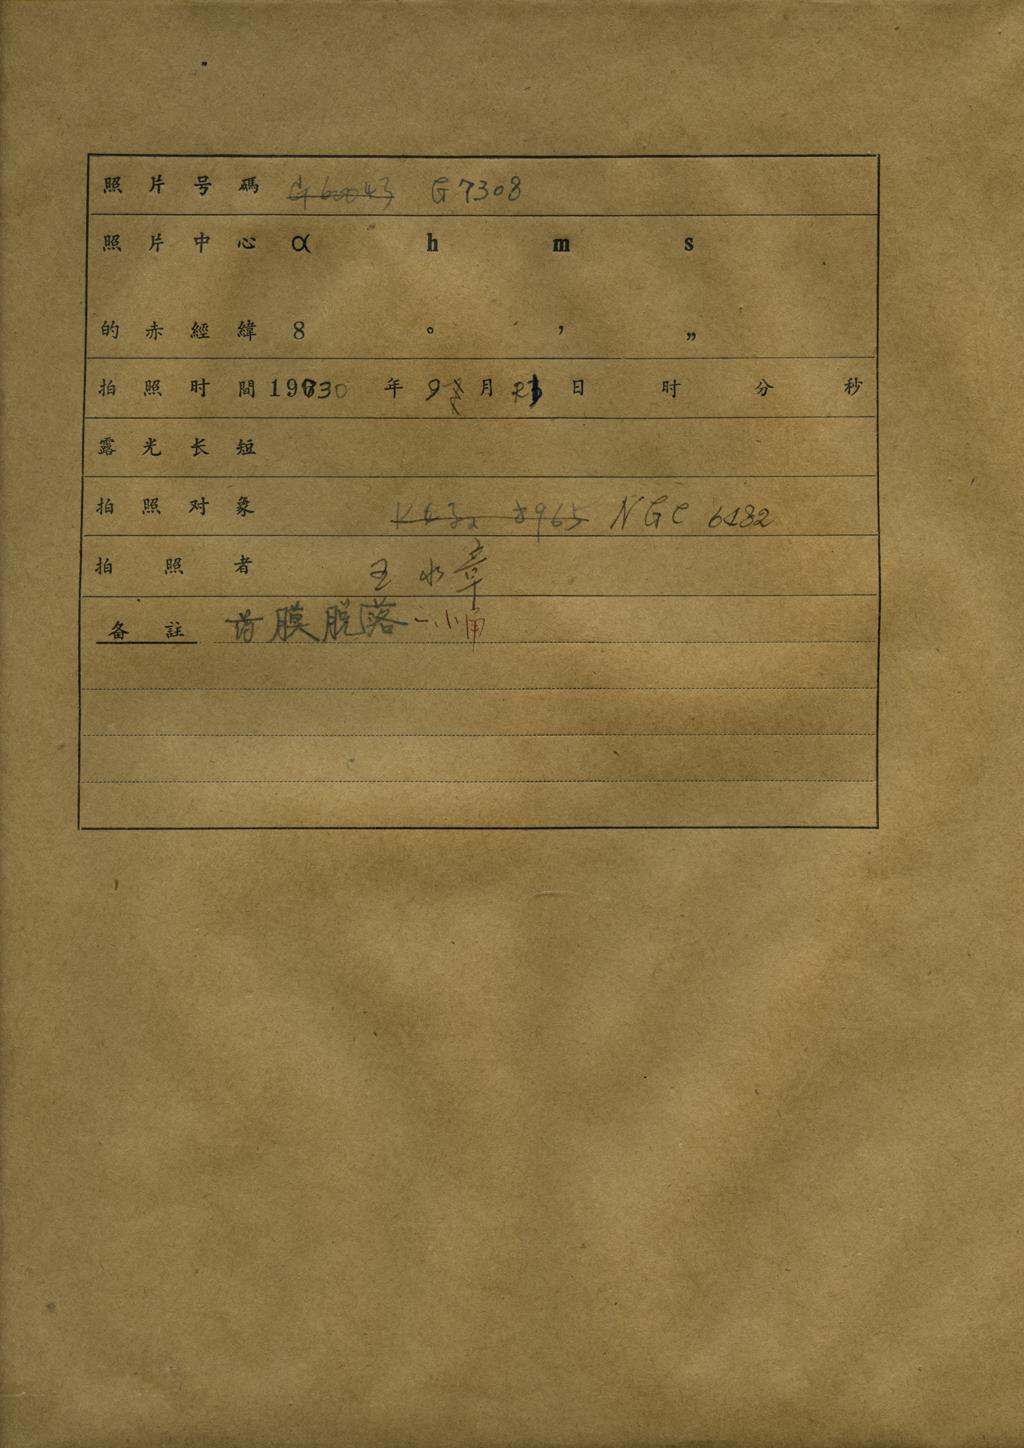 照片号碼 G60043 G7308
照片中心 α h m s
的赤經緯 8 ° ′ ″
拍照时間 19730 年 9 月 23 日 时 分 秒
露光长短
拍照对象 NGC 6482
拍照者 王水章
备註 膜脱落一小角